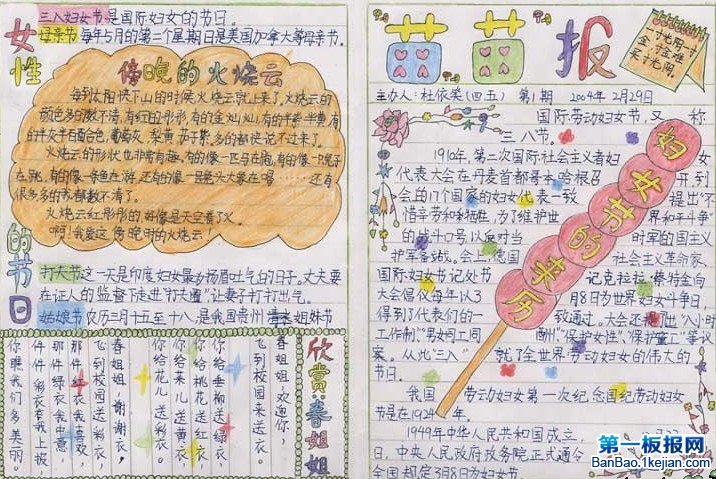 女性的节日
三八妇女节是国际妇女的节日。
母亲节 每年5月的第二个星期日是美国加拿大等母亲节。
傍晚的火烧云
每到太阳快下山的时候火烧云就上来了,火烧云的
颜色多的数不清,有红的彤彤,有的金灿灿,有的半紫半黄,有
的半灰半百合色,葡萄灰、梨黄、茄子紫,多的都快说不过来了。
火烧云的形状也非常有趣,有的像一匹马在跑,有的像一只兔子
在跳,有的像一条鱼在游,还有的像一只
很多多的我都数不清了。
火烧云红彤彤的好像是天空着了火。
啊!我爱这傍晚时的火烧云!
打夫节 这一天是印度妇女最扬眉吐气的日子。丈夫要
在证人的监督下走进"打夫圈"让妻子打打出气。
姑娘节 农历三月十五至十八,是我国贵州 姐妹节
欣赏:春姐姐
春姐姐,欢迎你,
飞到校园来送衣,
你给垂柳送绿衣,
你给桃花送红衣,
你给菜儿送黄衣,
你给花儿送彩衣。
春姐姐,谢谢衣,
飞到校园送彩衣,
那件红衣我喜欢,
那件绿衣我中意,
件件彩衣套我上披
你瞧我们多美丽。
苗苗报
一寸光阴一寸
金,寸金难
买寸光阴。
主办人:杜依笑(四五) 第1期 2004年2月29日
国际劳动妇女节,又称
三八节。
妇女节的来历
1910年,第二次国际社会主义者妇女
代表大会在丹麦首都哥本哈根召开,到
会的17个国家的妇女代表一致提出"不
世界和平斗争"
的战斗口号,以反对当时军的国主义
扩军备战。会上,德国社会主义革命家
国际妇女节记处书记克拉拉·蔡特金向
大会倡仪每年以3月8日为世界妇女斗争日
得到了代表们的一致通过。大会还 出"八小时
工作制""男女同工同酬""保护女性""保护童工"等议
案。从此"三八"就了全世界劳动妇女的伟大的
节日。
我国劳动妇女第一次纪念国纪劳动妇女
节是在1924年。
1949年中华人民共和国成立,
日,中央人民政府政务院正式通令
全国规定3月8日为妇女节
第一板报网
BanBao.1kejian.com